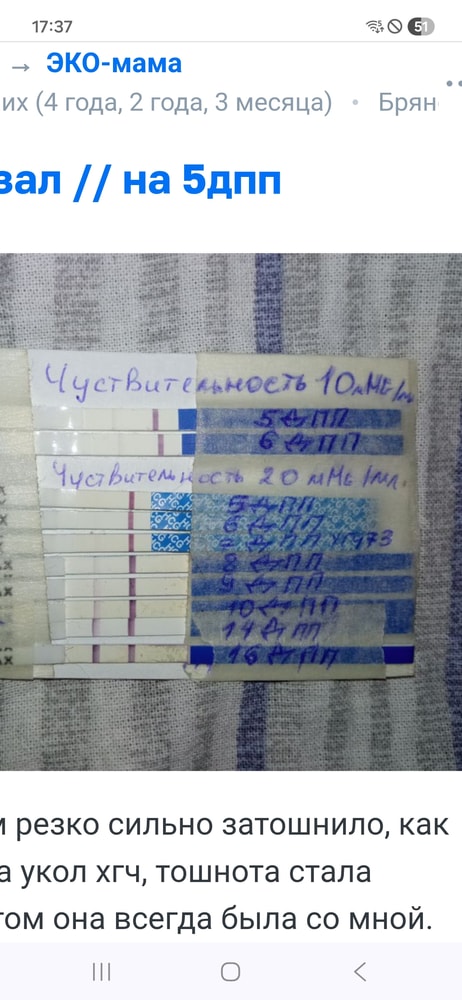 17:37
51
→ ЭКО-мама
их (4 года, 2 года, 3 месяца) • Брян
зал // на 5дпп
Чуствительность 10 мМЕ/мл
5дпп
6дпп
Чуствительность 20 мМЕ/мл.
5дпп
6дпп
дпп хгч73
8дпп
9дпп
10дпп
дпп
16дпп
резко сильно затошнило, как
а укол хгч, тошнота стала
том она всегда была со мной.